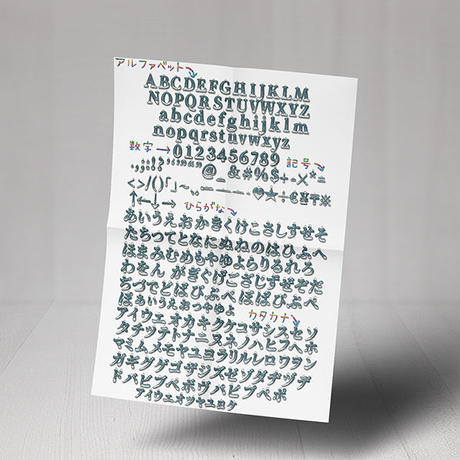 アルファベット⤵
ABCDEFGHIJKLM
NOPQRSTUVWXYZ
abcdefghijklm
nopqrstuvwxyz
数字→0123456789 記号⤵
@_ &#%$+-×*=
↑←↓→ ひらがな⤵
あいうえおかきくけこさしすせそ
たちつてとなにぬねのはひふへ
ほまみむめもやゆよらりるれろ
わをん がぎぐげござじずぜぞだ
ぢづでどばびぶべぼぱぴぷぺ
カタカナ⤵
アイウエオカキクケコサシスセソ
タチツテトナニヌネノハヒフヘホ
マミムメモヤユヨラリルレロワヲン
ガギグゲゴザジズゼゾダヂヅデ
ドバビブベボヴパピプペポ
アイウエオツヤユヨ